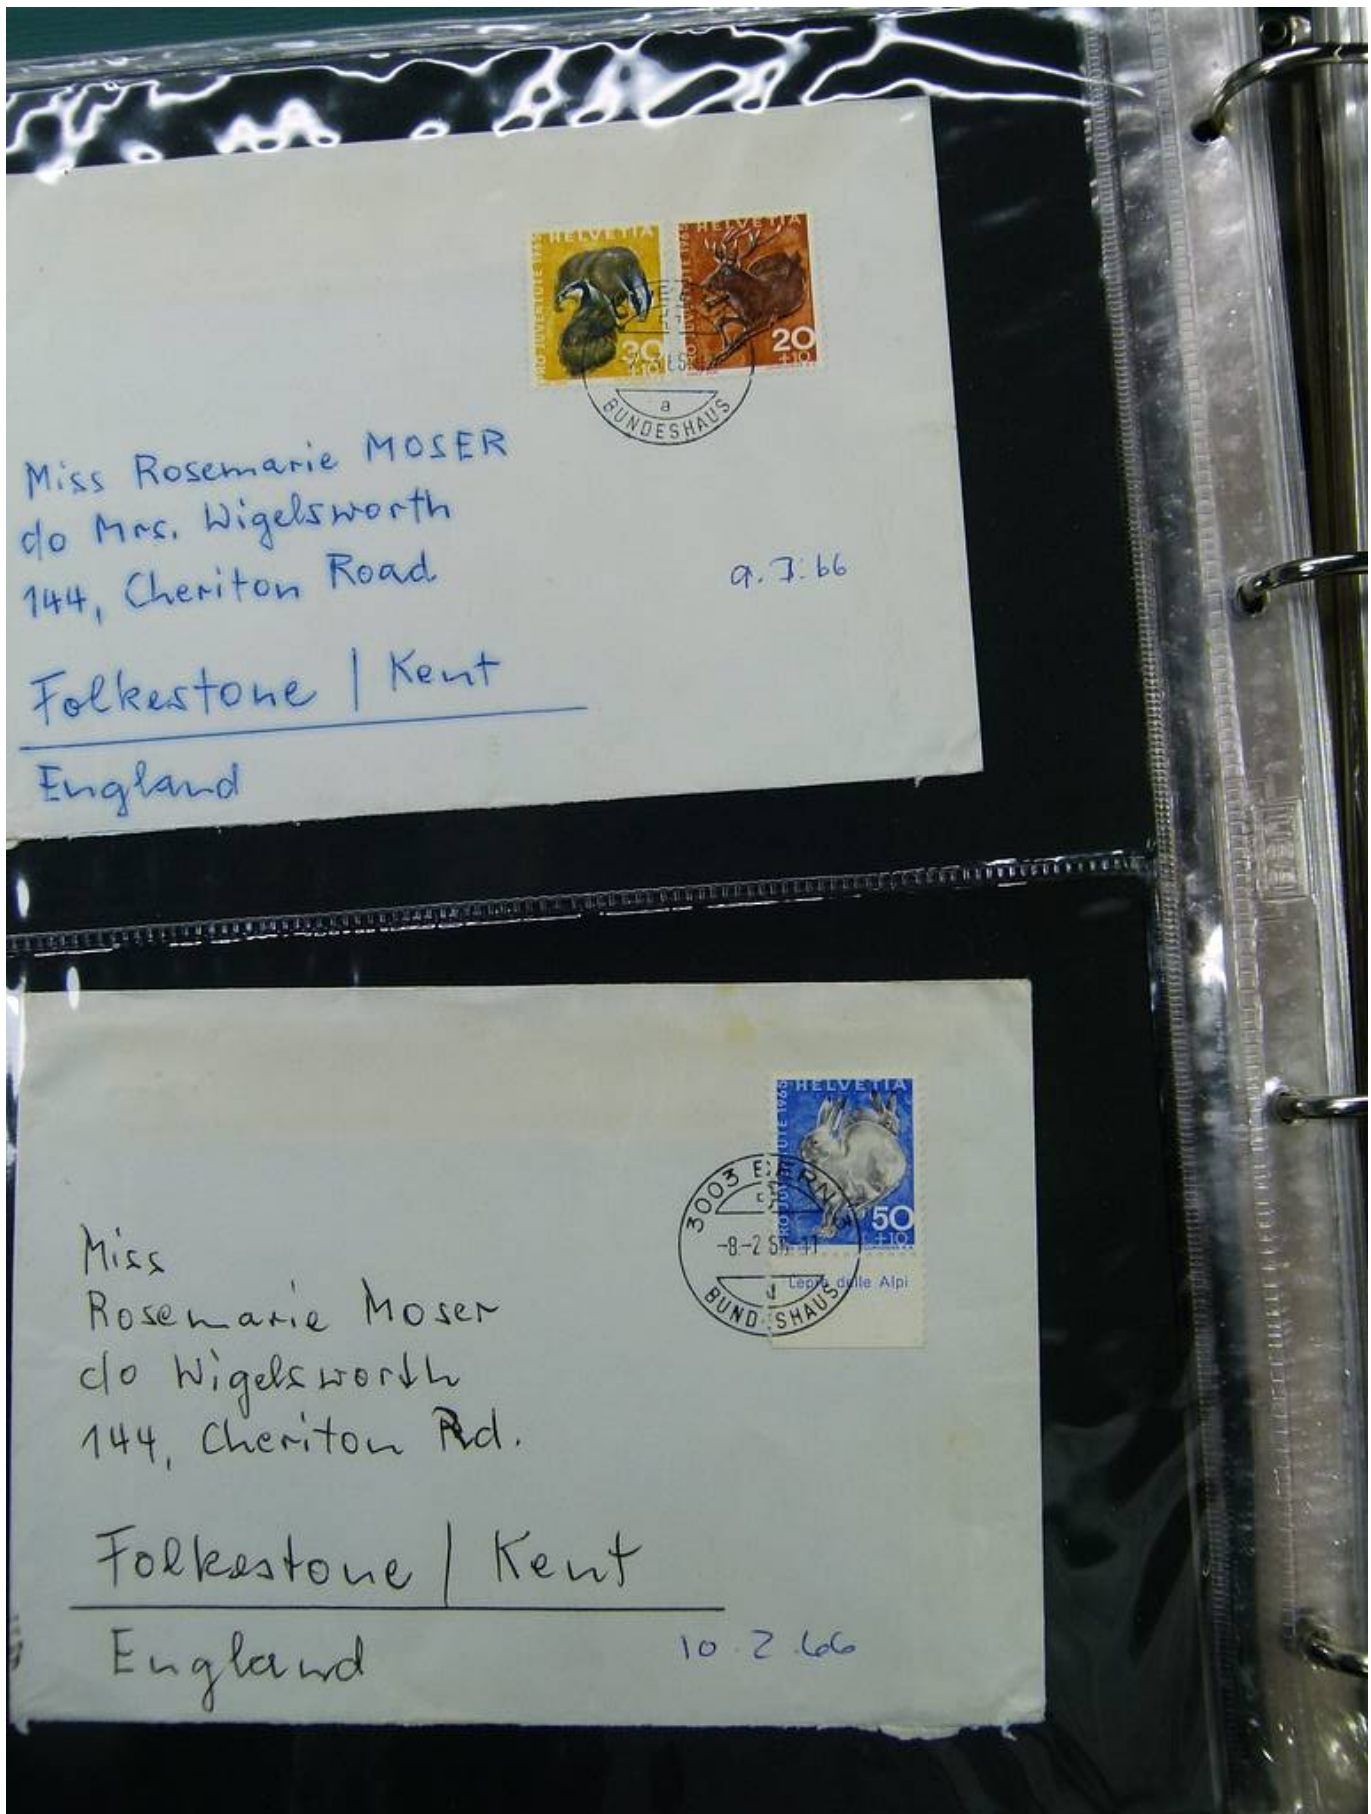 HELVETIA
PRO JUVENTUTE 1965
30
+10
HELVETIA
PRO JUVENTUTE 1965
20
+10
a
BUNDESHAUS
Miss Rosemarie MOSER
c/o Mrs. Wigelsworth
144, Cheriton Road
9. I. 66
Folkestone / Kent
England
HELVETIA
PRO JUVENTUTE 1965
50
+10
Lepre delle Alpi
3003 BERN 3
-8.-2 66 11
BUNDESHAUS
Miss
Rosemarie Moser
c/o Wigelsworth
144, Cheriton Rd.
Folkestone / Kent
England
10.2.66